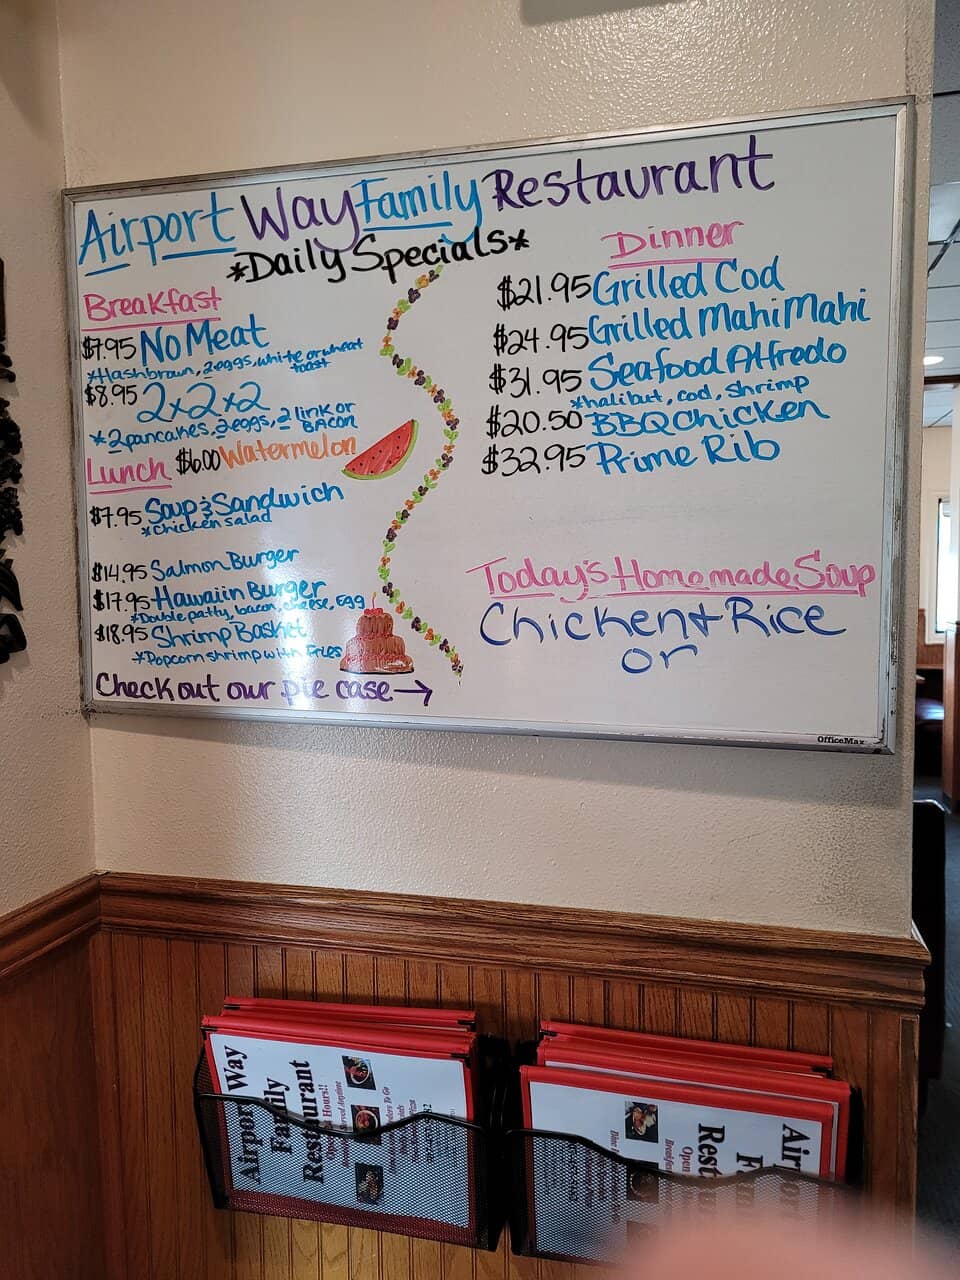 Airport Way Family Restaurant
*Daily Specials*
Breakfast
$7.95 No Meat
*Hashbrown, 2eggs, white or wheat
toast
$8.95 2x2x2
*2 pancakes, 2 eggs, 2 link or
BACON
Lunch $6.00 Watermelon
$7.95 Soup & Sandwich
*Chicken salad
$14.95 Salmon Burger
$17.95 Hawaiin Burger
*Double patty, bacon, cheese, Egg
$18.95 Shrimp Basket
*Popcorn shrimp with Fries
Check out our pie case→
Dinner
$21.95 Grilled Cod
$24.95 Grilled Mahi Mahi
$31.95 Seafood Alfredo
*halibut, cod, shrimp
$20.50 BBQ Chicken
$32.95 Prime Rib
Today's Homemade Soup
Chicken & Rice
or
OfficeMax
Airport Way
Family
Restaurant